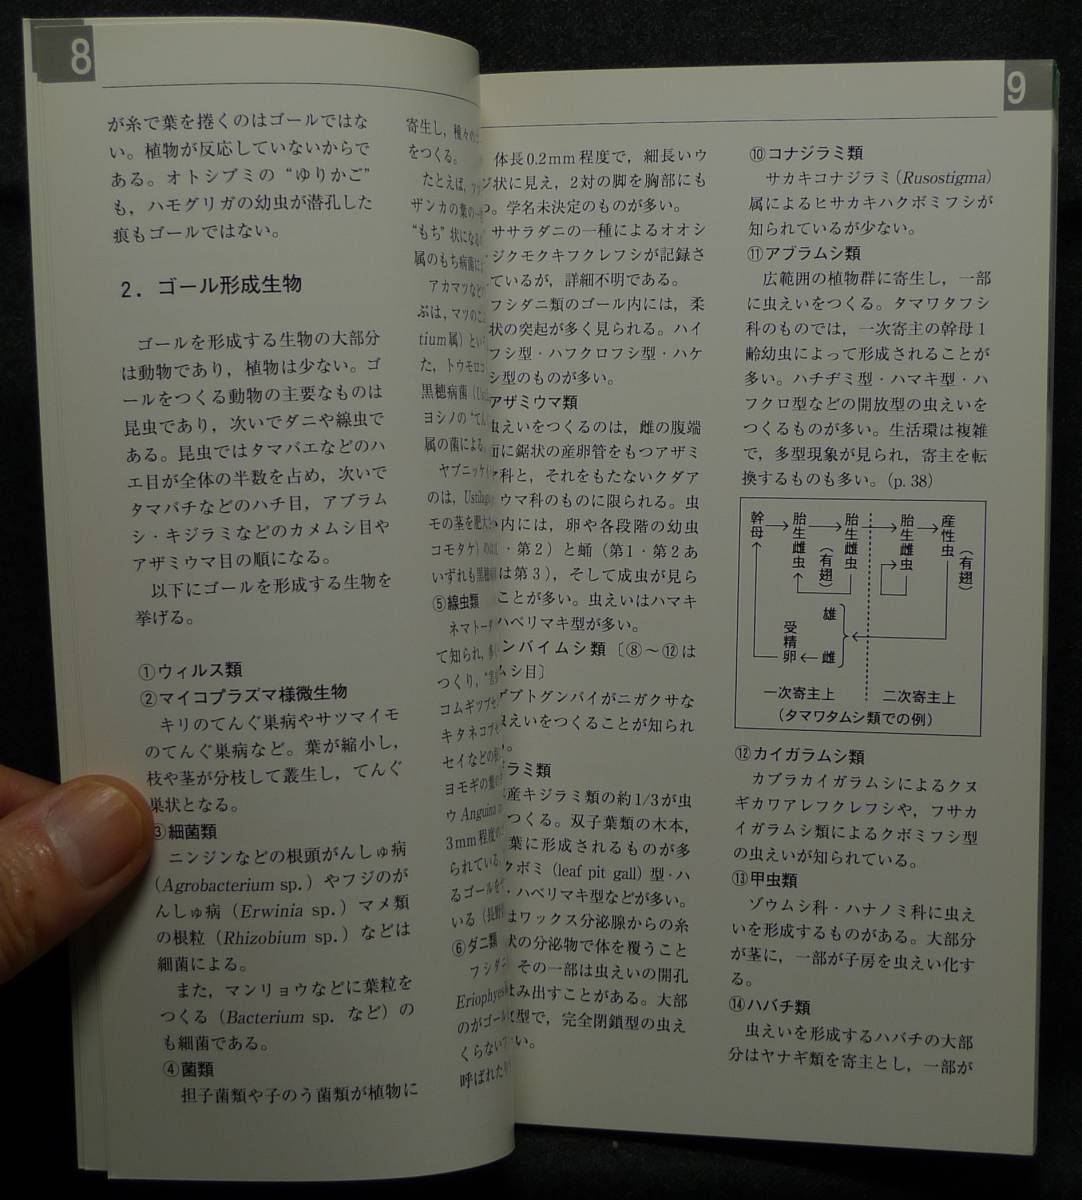 8
が糸で葉を捲くのはゴールではな
い。植物が反応していないからで
ある。オトシブミの“ゆりかご”
も，ハモグリガの幼虫が潜孔した
痕もゴールではない。
2．ゴール形成生物
ゴールを形成する生物の大部分
は動物であり，植物は少ない。ゴ
ールをつくる動物の主要なものは
昆虫であり，次いでダニや線虫で
ある。昆虫ではタマバエなどのハ
エ目が全体の半数を占め，次いで
タマバチなどのハチ目，アブラム
シ・キジラミなどのカメムシ目や
アザミウマ目の順になる。
以下にゴールを形成する生物を
挙げる。
①ウィルス類
②マイコプラズマ様微生物
キリのてんぐ巣病やサツマイモ
のてんぐ巣病など。葉が縮小し，
枝や茎が分枝して叢生し，てんぐ
巣状となる。
③細菌類
ニンジンなどの根頭がんしゅ病
(Agrobacterium sp.) やフジのが
んしゅ病 (Erwinia sp.) マメ類
の根粒 (Rhizobium sp.) などは
細菌による。
また，マンリョウなどに葉粒を
つくる (Bacterium sp. など) の
も細菌である。
④菌類
担子菌類や子のう菌類が植物に
寄生し，種々の
をつくる。
たとえば，
ザンカの葉の
“もち”状になる
属のもち病菌に
アカマツなどの
ぶは，マツのこ
tium属) とい
た，トウモロコ
黒穂病菌 (Us
ヨシノの“てん
属の菌による。
ヤブニッケイ
のは，Ustilago
モの茎を肥大
コモタケ) の
いずれも黒穂
⑤線虫類
ネマトー
て知られ，
つくり，
コムギツブセ
キタネコブセ
セイなどの
ヨモギの葉の
ウ Anguina
3mm程度の
られている
るゴールを
いる (長野
⑥ダニ類
フシダニ
Eriophyes
のがゴール
くらない
呼ばれた
9
体長0.2mm程度で，細長いウ
ジ状に見え，2対の脚を胸部にも
つ。学名未決定のものが多い。
ササラダニの一種によるオオシ
ジクモクキフクレフシが記録さ
ているが，詳細不明である。
フシダニ類のゴール内には，柔
状の突起が多く見られる。ハイ
フシ型・ハフクロフシ型・ハケ
シ型のものが多い。
アザミウマ類
虫えいをつくるのは，雌の腹端
面に鋸状の産卵管をもつアザミ
マ科と，それをもたないクダア
ウマ科のものに限られる。虫
内には，卵や各段階の幼虫
・第2) と蛹 (第1・第2あ
は第3)，そして成虫が見ら
ことが多い。虫えいはハマキ
ハベリマキ型が多い。
ンバイムシ類〔⑧～⑫は
ムシ目〕
ブトグンバイがニガクサな
えいをつくることが知られ
。
ラミ類
産キジラミ類の約1/3が虫
つくる。双子葉類の木本，
葉に形成されるものが多
クボミ (leaf pit gall) 型・ハ
・ハベリマキ型などが多い。
はワックス分泌腺からの糸
状の分泌物で体を覆うこと
，その一部は虫えいの開孔
よみ出すことがある。大部
型で，完全閉鎖型の虫え
い。
⑩コナジラミ類
サカキコナジラミ (Rusostigma)
属によるヒサカキハクボミフシが
知られているが少ない。
⑪アブラムシ類
広範囲の植物群に寄生し，一部
に虫えいをつくる。タマワタフシ
科のものでは，一次寄主の幹母1
齢幼虫によって形成されることが
多い。ハチヂミ型・ハマキ型・ハ
フクロ型などの開放型の虫えいを
つくるものが多い。生活環は複雑
で，多型現象が見られ，寄主を転
換するものも多い。(p.38)
幹母
胎生雌虫
胎生雌虫
(有翅)
胎生雌虫
産性虫
(有翅)
雄
受精卵
雌
一次寄主上
二次寄主上
(タマワタムシ類での例)
⑫カイガラムシ類
カブラカイガラムシによるクヌ
ギカワアレフクレフシや，フサカ
イガラムシ類によるクボミフシ型
の虫えいが知られている。
⑬甲虫類
ゾウムシ科・ハナノミ科に虫え
いを形成するものがある。大部分
が茎に，一部が子房を虫えい化す
る。
⑭ハバチ類
虫えいを形成するハバチの大部
分はヤナギ類を寄主とし，一部が